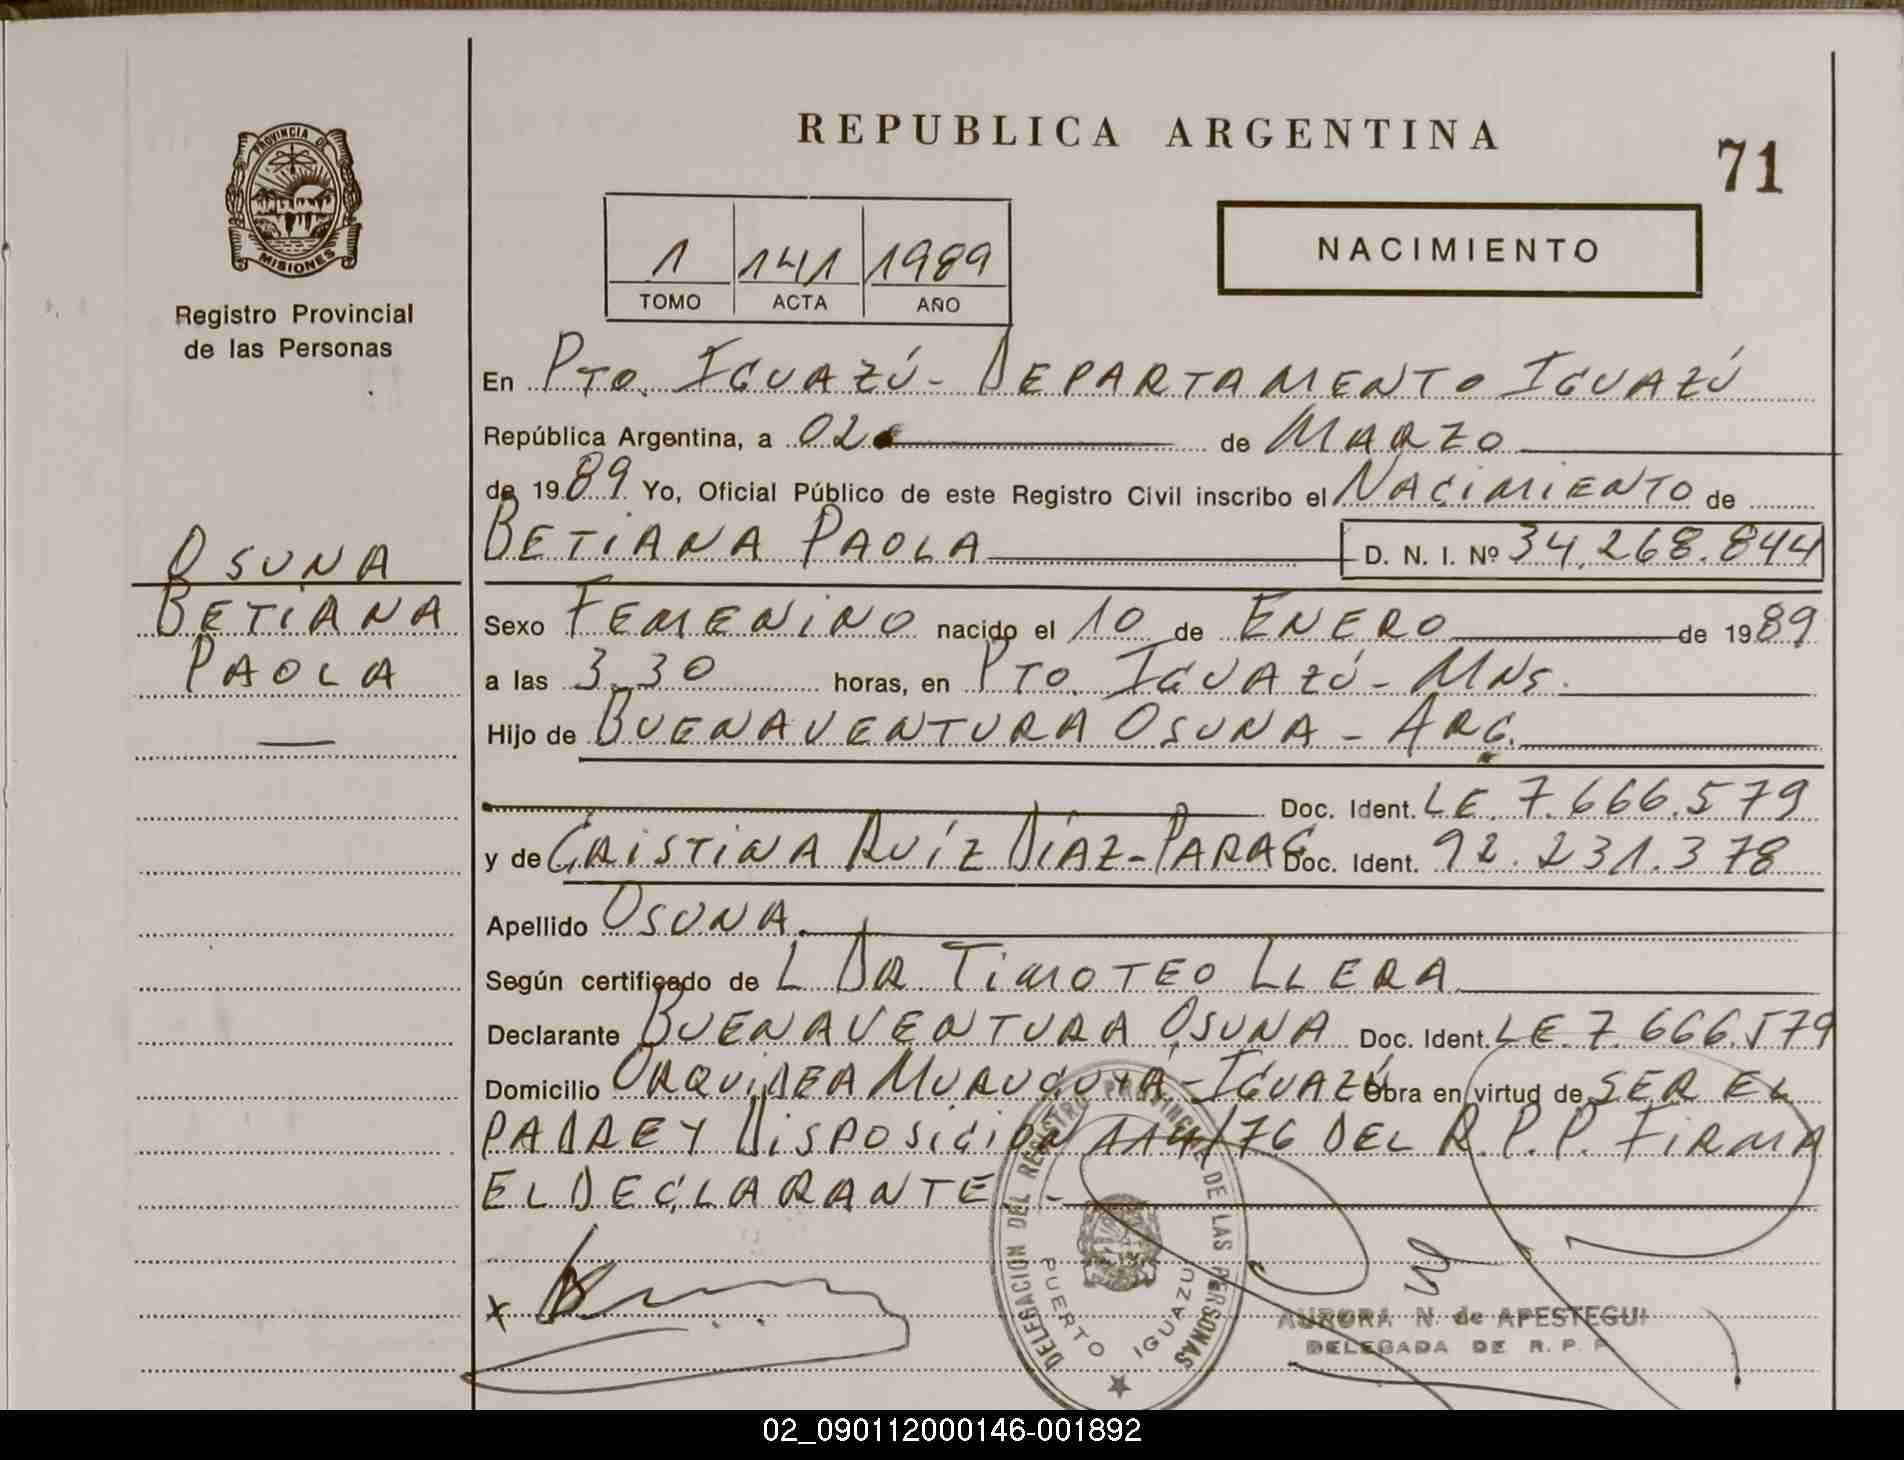 REPUBLICA ARGENTINA
71
PROVINCIA DE
MISIONES
Registro Provincial
de las Personas
1 141 1989
TOMO ACTA AÑO
NACIMIENTO
En PTO. IGUAZÚ - DEPARTAMENTO IGUAZÚ
República Argentina, a 02 de MARZO
de 1989 Yo, Oficial Público de este Registro Civil inscribo el NACIMIENTO de
BETIANA PAOLA D. N. I. Nº 34.268.844
OSUNA
BETIANA
PAOLA
Sexo FEMENINO nacido el 10 de ENERO de 1989
a las 3.30 horas, en PTO. IGUAZÚ - MNS.
Hijo de BUENAVENTURA OSUNA - ARG.
Doc. Ident. LE. 7.666.579
y de CRISTINA RUÍZ DÍAZ - PARAG Doc. Ident. 92.231.378
Apellido OSUNA.
Según certificado de L DR TIMOTEO LLERA
Declarante BUENAVENTURA OSUNA Doc. Ident. LE. 7.666.579
Domicilio ORQUIDEA MURUCUYÁ - IGUAZÚ Obra en virtud de SER EL
PADRE Y DISPOSICIÓN 114/76 DEL R.P.P. FIRMA
EL DECLARANTE
x
DELEGACION DEL REGISTRO PROVINCIAL DE LAS PERSONAS
PUERTO IGUAZU
AURORA N. de APESTEGUI
DELEGADA DE R. P. P
02_090112000146-001892